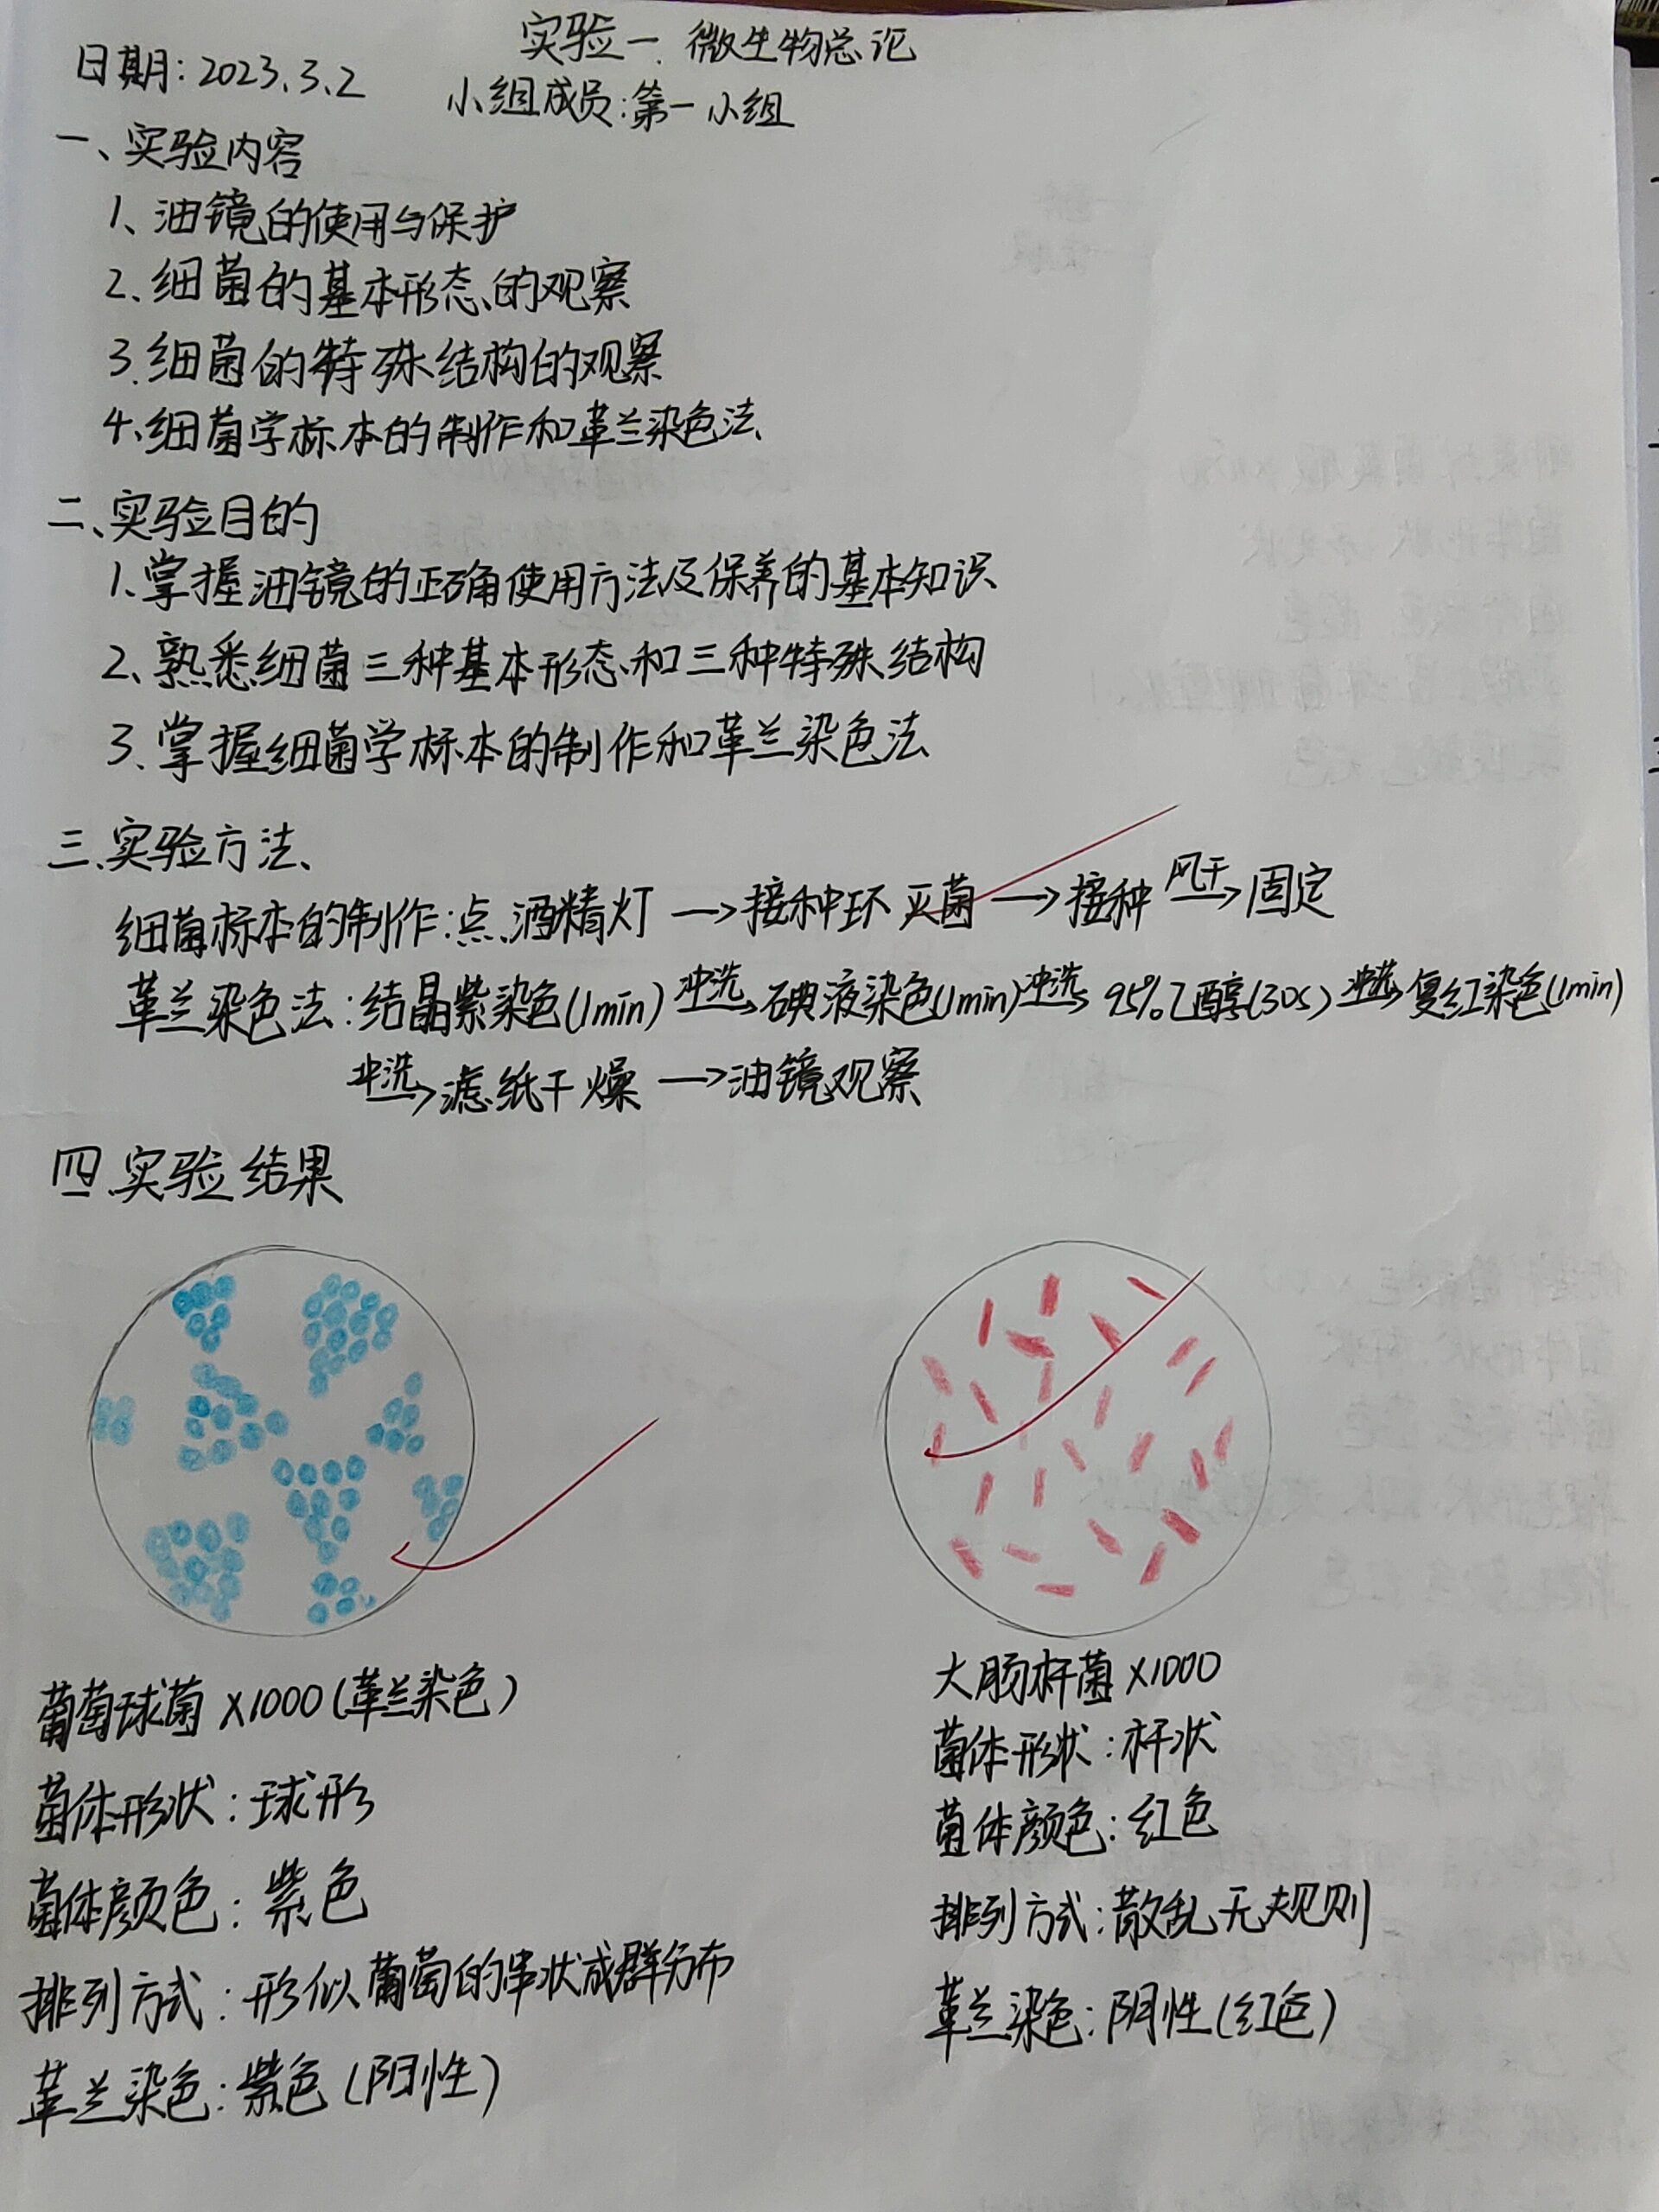 实验一. 微生物总论
日期: 2023.3.2
小组成员:第一小组
一、实验内容
1、油镜的使用与保护
2、细菌的基本形态的观察
3.细菌的特殊结构的观察
4.细菌学标本的制作和革兰染色法
二、实验目的
1.掌握油镜的正确使用方法及保养的基本知识
2、熟悉细菌三种基本形态和三种特殊结构
3、掌握细菌学标本的制作和革兰染色法
三.实验方法
细菌标本的制作:点酒精灯 →接种环 灭菌→接种 风干→ 固定
革兰染色法:结晶紫染色(1min) 冲洗→ 碘液染色(1min) 冲洗→ 95%乙醇(30s) 冲洗→ 复红染色(1min)
冲洗→滤纸干燥 →油镜观察
四.实验结果
葡萄球菌 ×1000(革兰染色)
菌体形状:球形
菌体颜色:紫色
排列方式:形似葡萄的串状成群分布
革兰染色:紫色(阳性)
大肠杆菌 ×1000
菌体形状:杆状
菌体颜色:红色
排列方式:散乱无规则
革兰染色:阴性(红色)